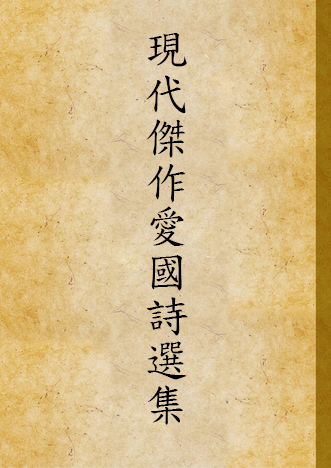 現代傑作愛國詩選集